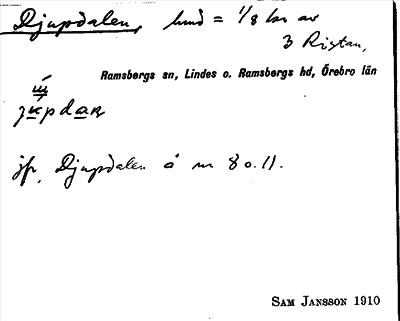 Djupdalen, hmd = 1/8 km av
3 Ristan,
Ramsbergs sn, Lindes o. Ramsbergs hd, Örebro län
jfr. Djupdalen å nr 8 o. 11.
SAM JANSSON 1910